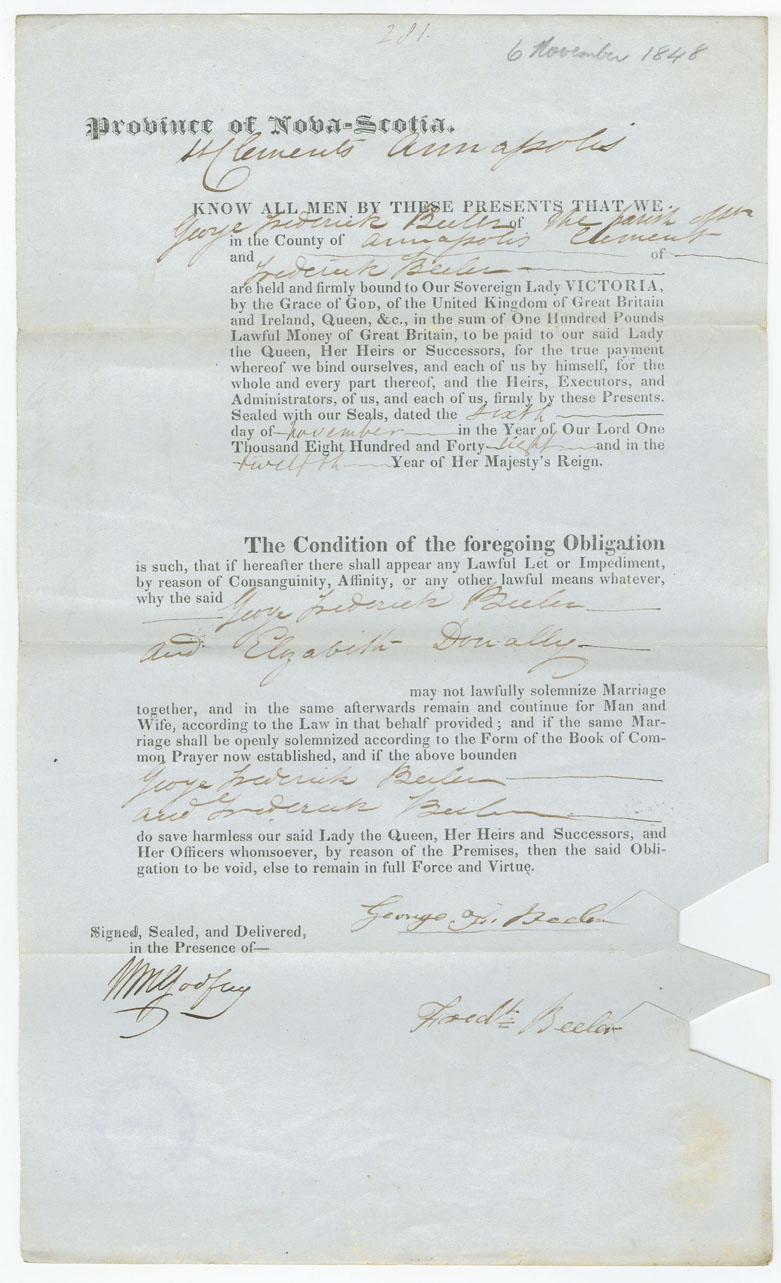 281.
6 November 1848
Province of Nova-Scotia.
St Clements Annapolis
KNOW ALL MEN BY THESE PRESENTS THAT WE
George Frederick Beeler of the parish of
in the County of Annapolis Clement
and of
Frederick Beeler
are held and firmly bound to Our Sovereign Lady VICTORIA,
by the Grace of GOD, of the United Kingdom of Great Britain
and Ireland, Queen, &c., in the sum of One Hundred Pounds
Lawful Money of Great Britain, to be paid to our said Lady
the Queen, Her Heirs or Successors, for the true payment
whereof we bind ourselves, and each of us by himself, for the
whole and every part thereof, and the Heirs, Executors, and
Administrators, of us, and each of us, firmly by these Presents.
Sealed with our Seals, dated the sixth
day of november in the Year of Our Lord One
Thousand Eight Hundred and Forty eight and in the
twelfth Year of Her Majesty's Reign.
The Condition of the foregoing Obligation
is such, that if hereafter there shall appear any Lawful Let or Impediment,
by reason of Consanguinity, Affinity, or any other lawful means whatever,
why the said
George Frederick Beeler
and Elizabeth Donally
may not lawfully solemnize Marriage
together, and in the same afterwards remain and continue for Man and
Wife, according to the Law in that behalf provided; and if the same Mar-
riage shall be openly solemnized according to the Form of the Book of Com-
mon Prayer now established, and if the above bounden
George Frederick Beeler
and Frederick Beeler
do save harmless our said Lady the Queen, Her Heirs and Successors, and
Her Officers whomsoever, by reason of the Premises, then the said Obli-
gation to be void, else to remain in full Force and Virtue.
George F. Beeler
Signed, Sealed, and Delivered,
in the Presence of—
Wm Godfrey
Fredk Beeler